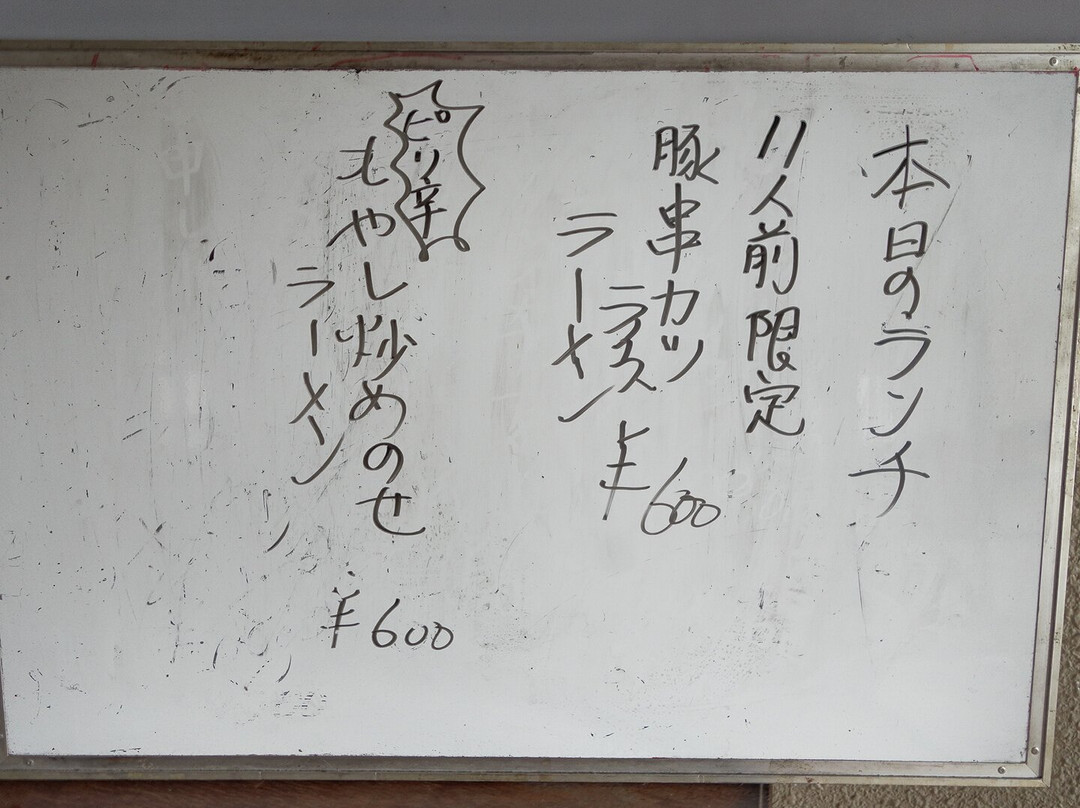 本日のランチ
11人前限定
豚串カツ
ライス
ラーメン
¥600
ピリ辛
もやし炒めのせ
ラーメン
¥600